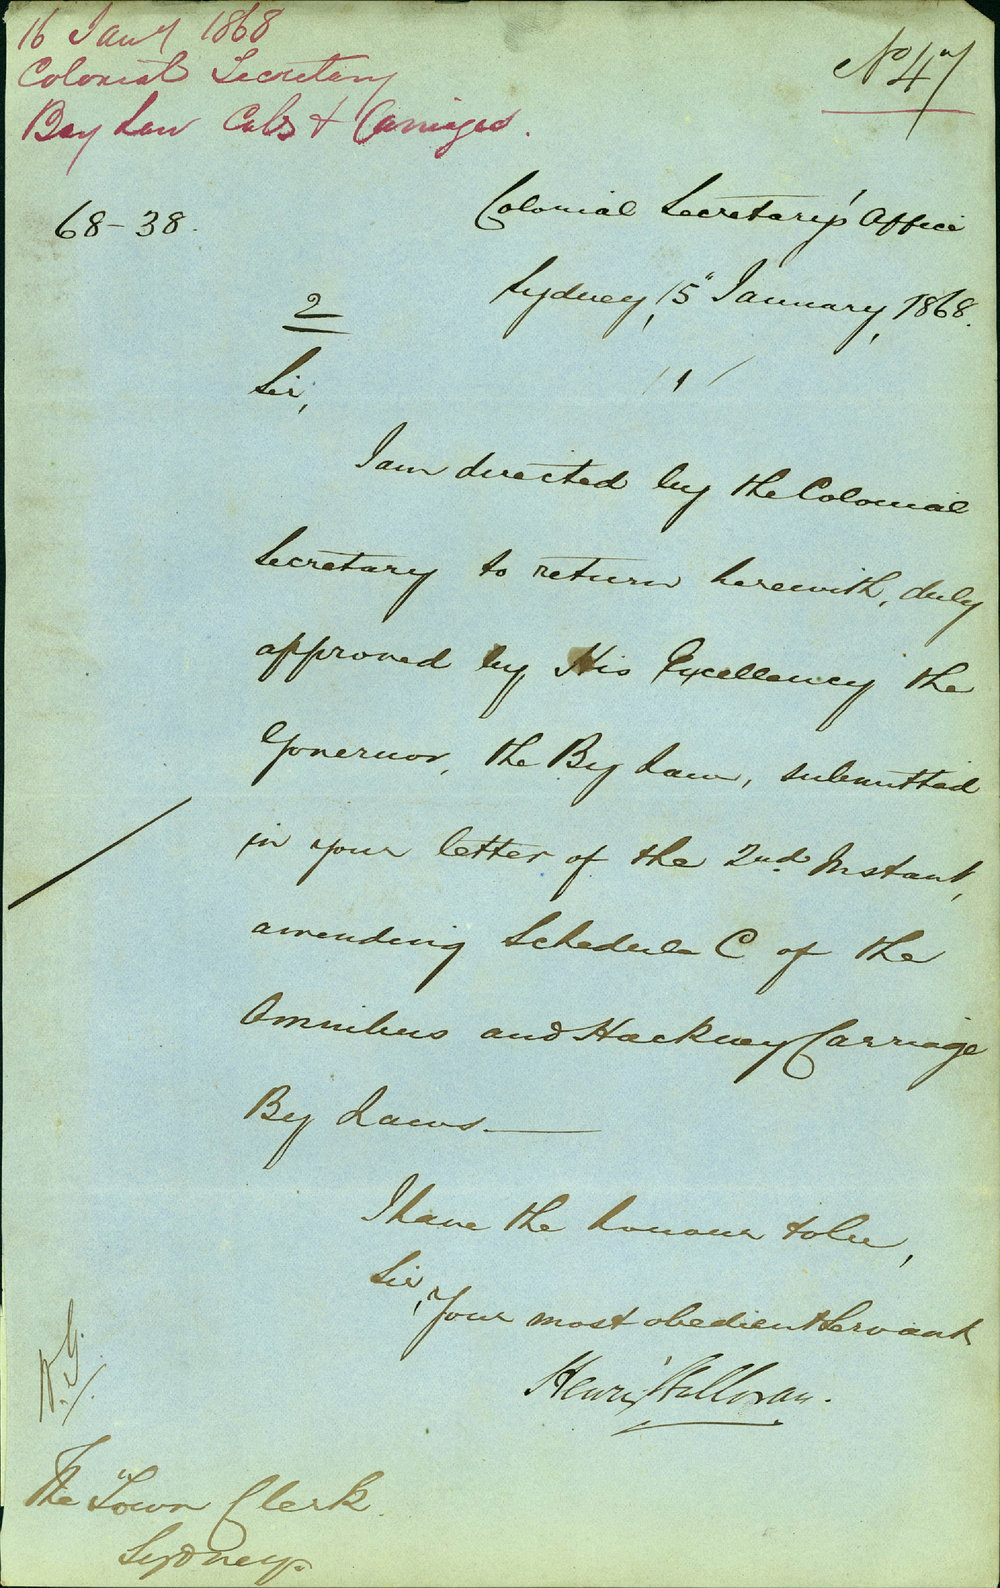 16 Jany 1868
Colonial Secretary
Bay Law Cabs & Carriages.
No 47
68-38.
Colonial Secretary's Office
Sydney, 15" January, 1868.
2
Sir,
I am directed by the Colonial
Secretary to return herewith, duly
approved by His Excellency the
Governor, the By Law, submitted
in your letter of the 2nd Instant,
amending Schedule C of the
Omnibus and Hackney Carriage
By Laws.—
I have the honour to be,
Sir,
Your most obedient Servant
Henry Halloran.
The Town Clerk
Sydney.